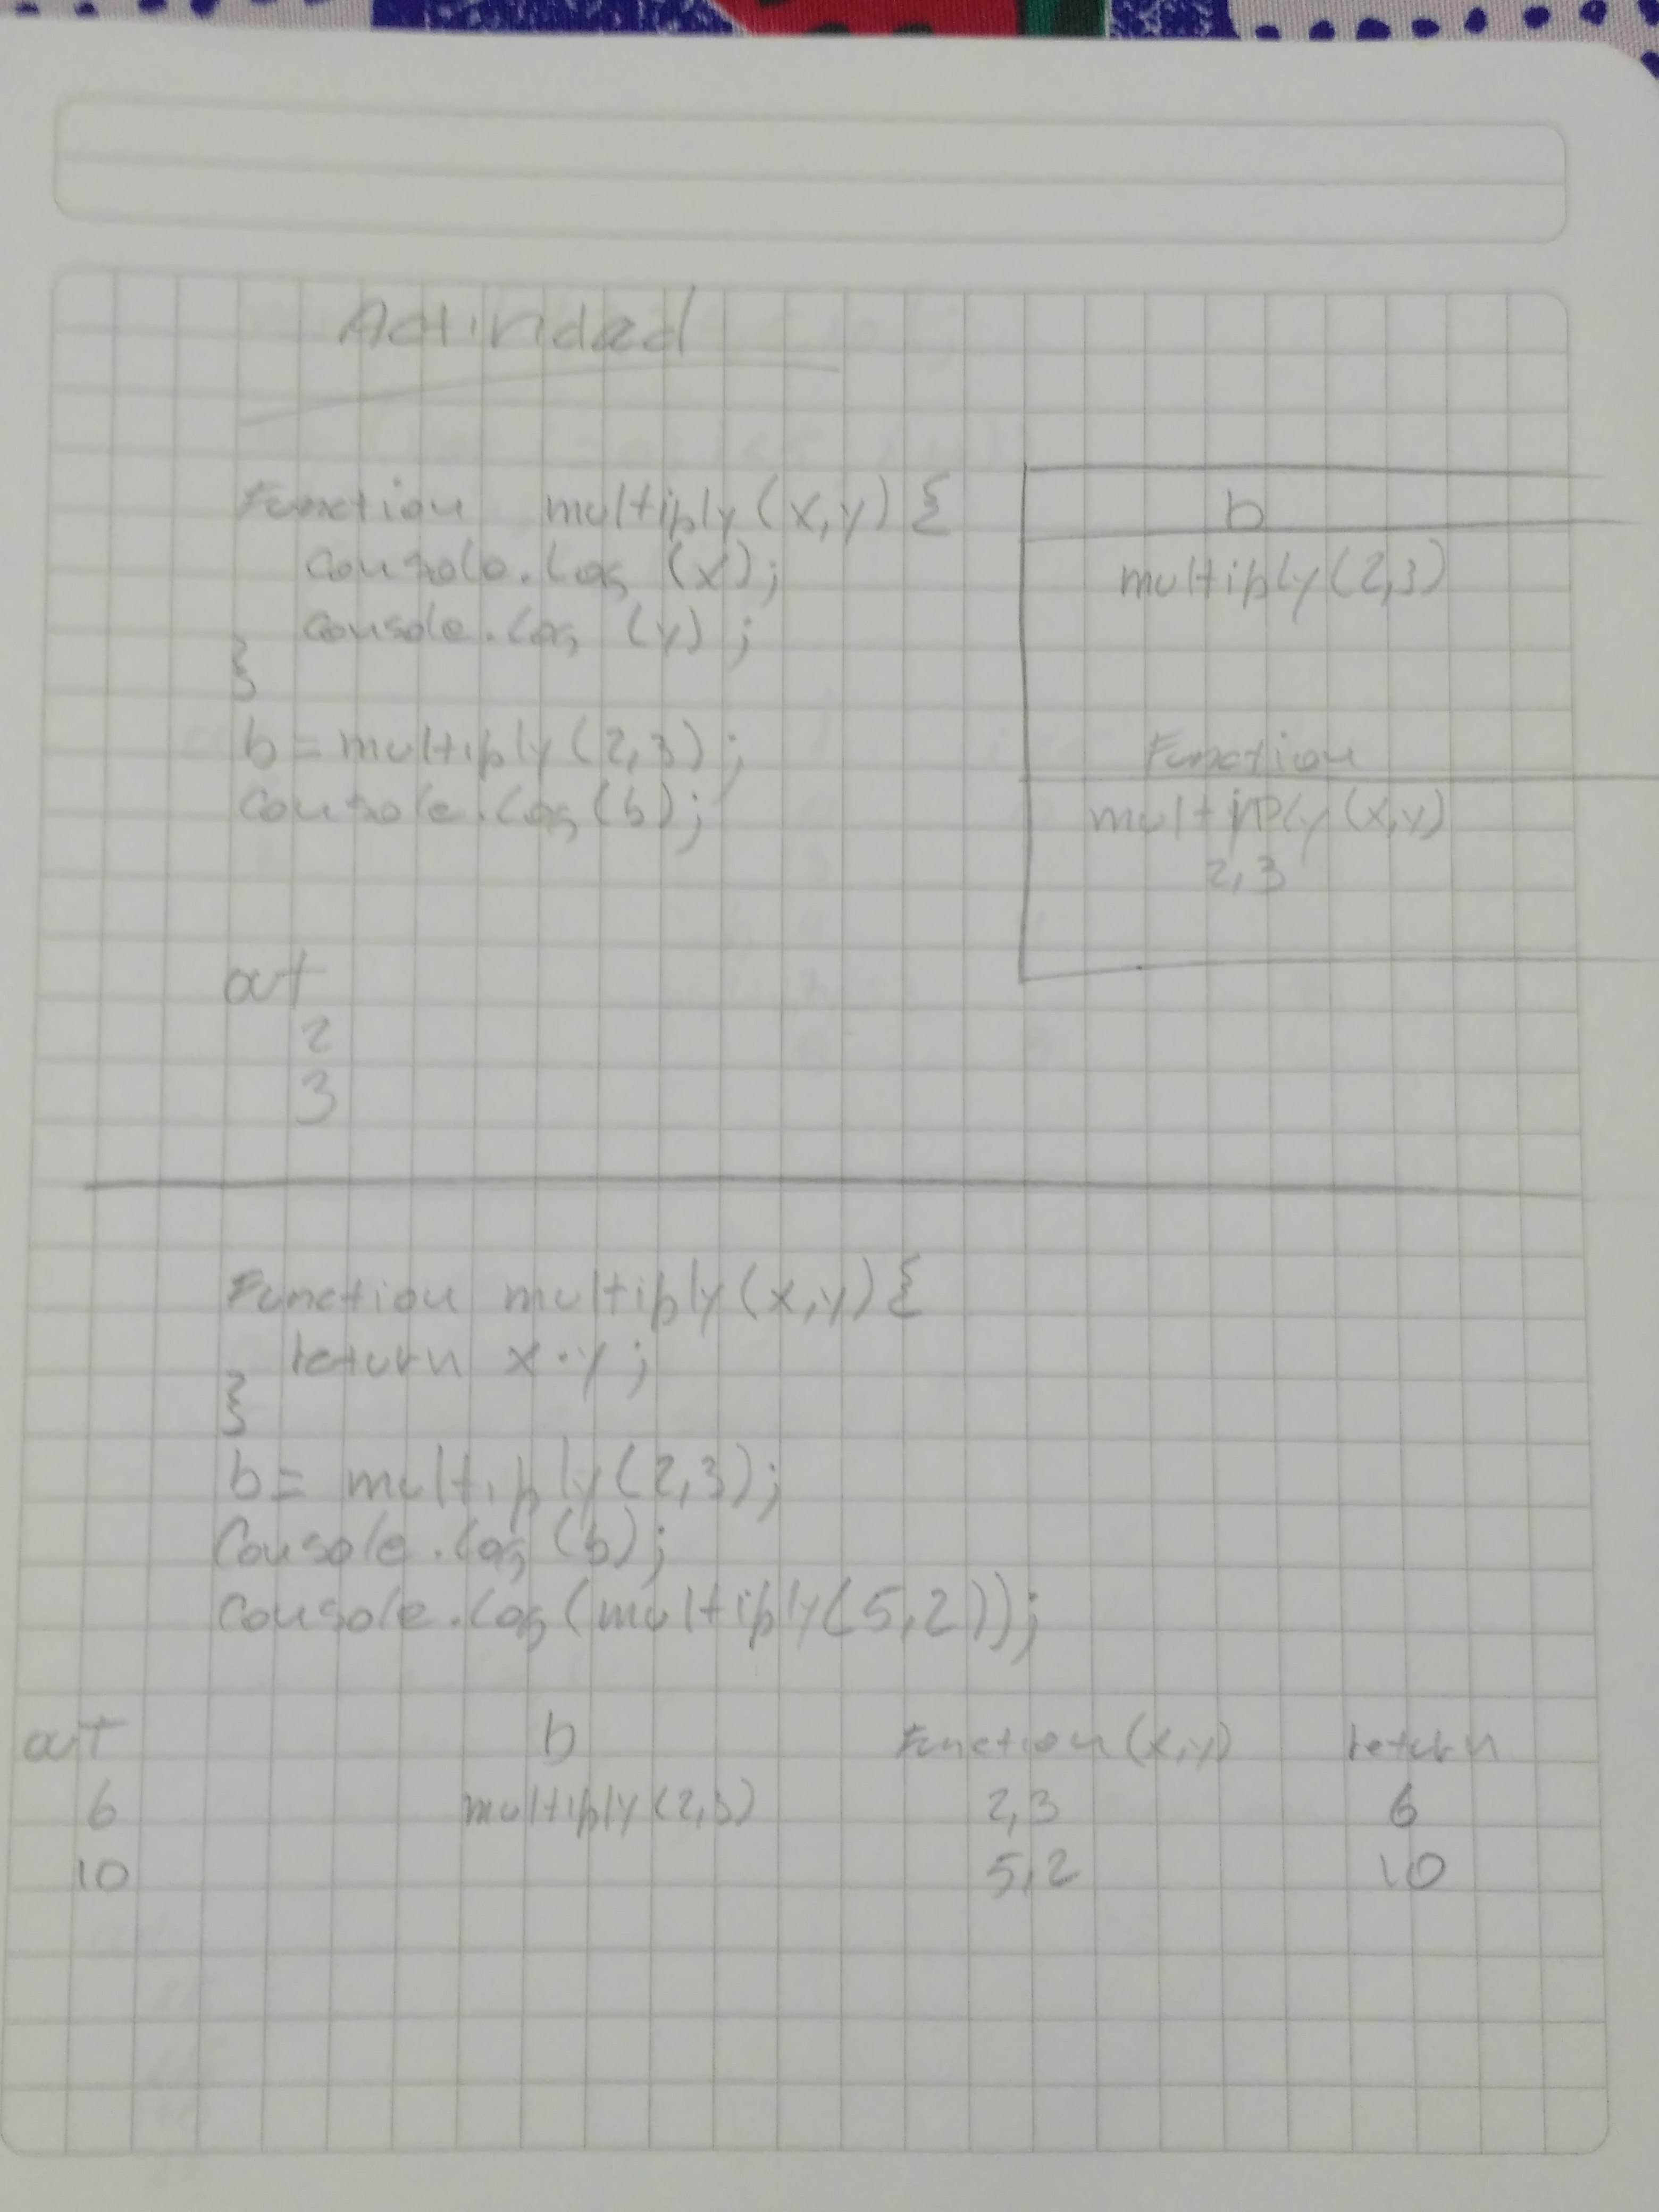 Actividad
Function multiply (x,y) {
console.log (x);
console.log (y);
}
b = multiply (2,3);
console.log (b);
out
2
3
b
multiply (2,3)
Function
multiply (x,y)
2,3
Function multiply (x,y) {
return x·y;
}
b = multiply (2,3);
Console.log (b);
console.log (multiply (5,2));
out b Function (x,y) return
6 multiply (2,3) 2,3 6
10 5,2 10